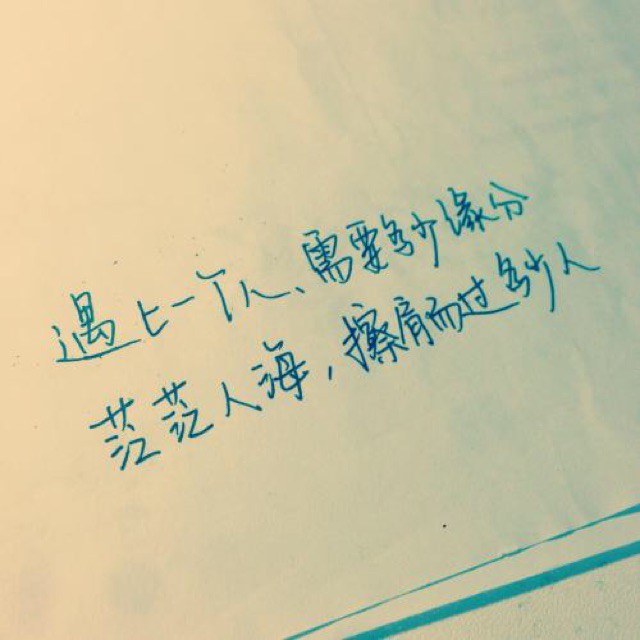 遇上一个人、需要多少缘分
茫茫人海，擦肩而过多少人